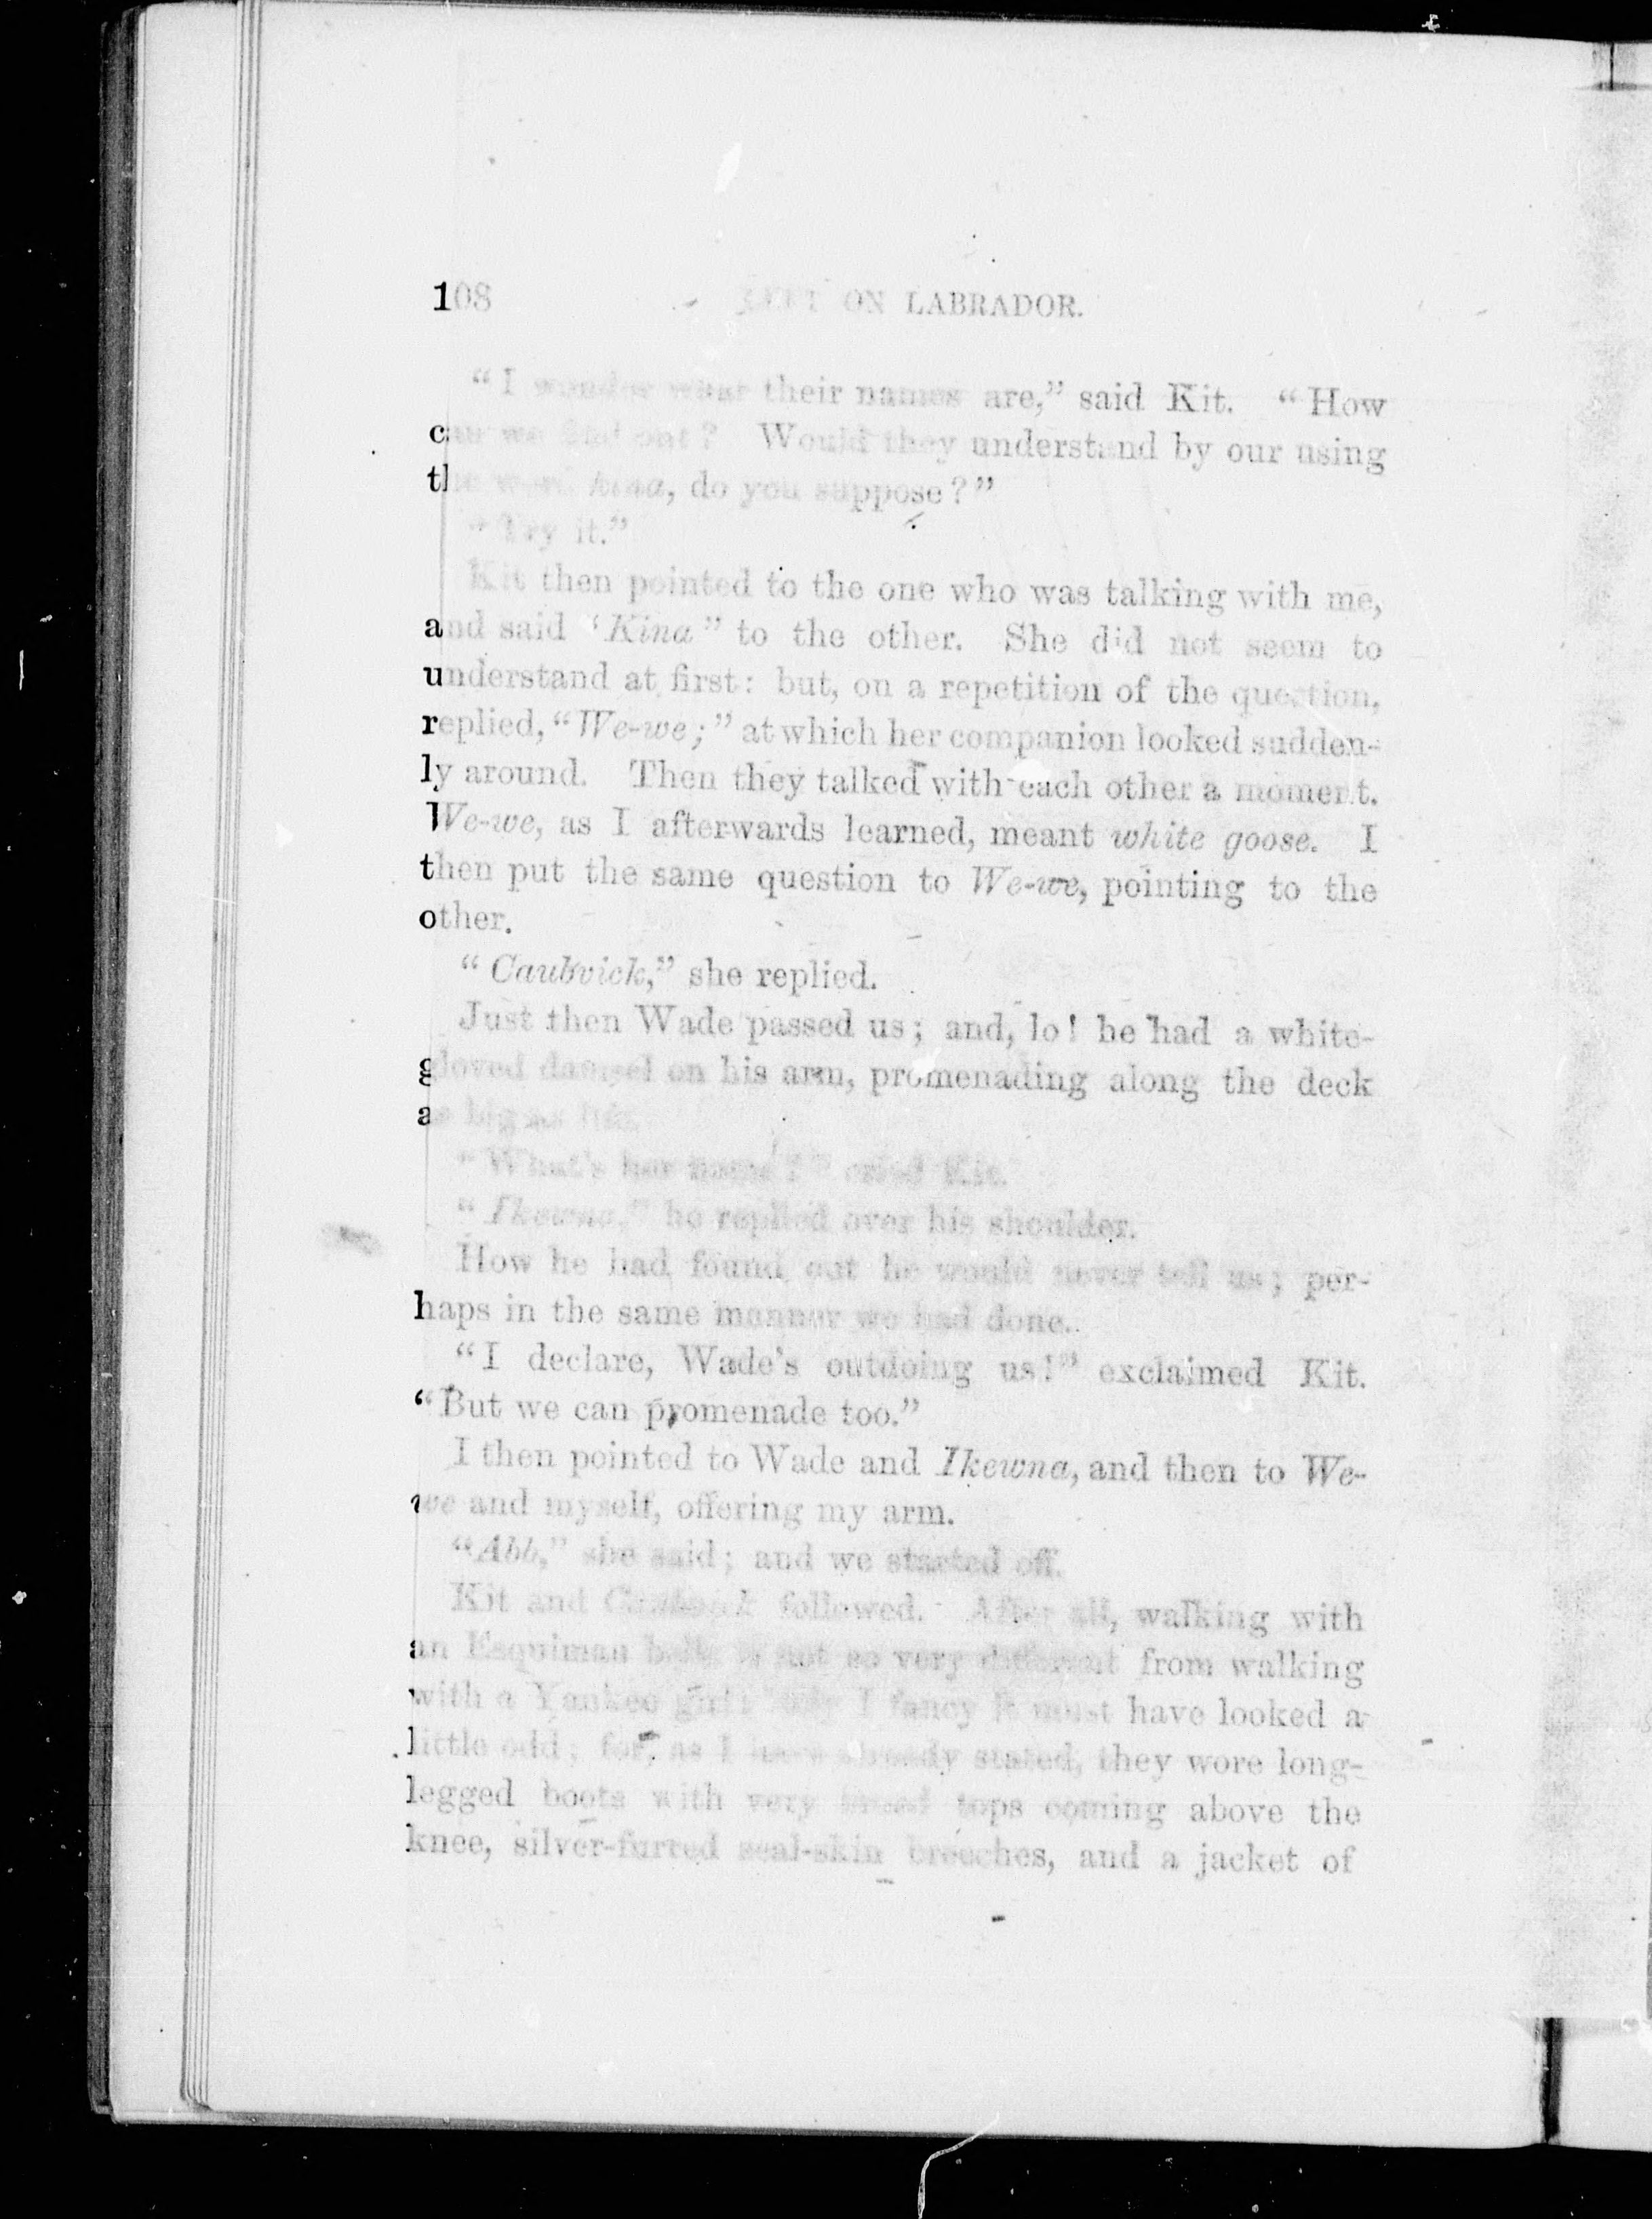 108 LEFT ON LABRADOR.
"I wonder what their names are," said Kit. "How
can we find out? Would they understand by our using
the word kina, do you suppose?"
"Try it."
Kit then pointed to the one who was talking with me,
and said "Kina" to the other. She did not seem to
understand at first: but, on a repetition of the question,
replied, "We-we;" at which her companion looked sudden-
ly around. Then they talked with each other a moment.
We-we, as I afterwards learned, meant white goose. I
then put the same question to We-we, pointing to the
other.
"Caubvick," she replied.
Just then Wade passed us; and, lo! he had a white-
gloved damsel on his arm, promenading along the deck
as big as life.
"What's her name?" cried Kit.
"Ikewna," he replied over his shoulder.
How he had found out he would never tell us; per-
haps in the same manner we had done.
"I declare, Wade's outdoing us!" exclaimed Kit.
"But we can promenade too."
I then pointed to Wade and Ikewna, and then to We-
we and myself, offering my arm.
"Abb," she said; and we started off.
Kit and Caubvick followed. After all, walking with
an Esquimau belle is not so very different from walking
with a Yankee girl: only I fancy it must have looked a
little odd; for, as I have already stated, they wore long-
legged boots with very tops coming above the
knee, silver-furred seal-skin breeches, and a jacket of